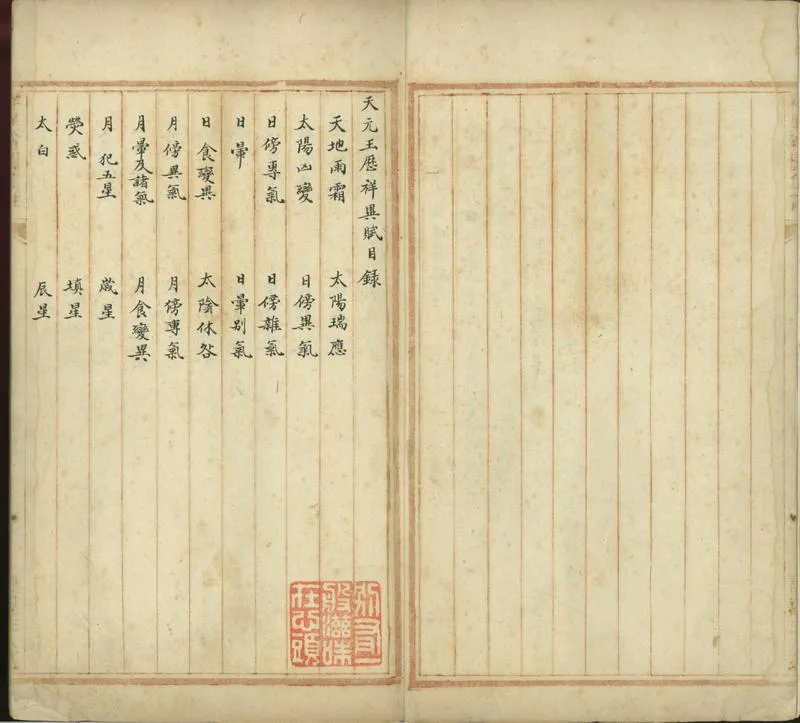 天元玉歷祥異賦目錄
天地雨霜　太陽瑞應
太陽凶變　日傍異氣
日傍專氣　日傍雜氣
日暈　日暈别氣
日食變異　太陰休咎
月傍異氣　月傍專氣
月暈及諸氣　月食變異
月犯五星　歲星
熒惑　填星
太白　辰星
別有一
般滋味
在心頭